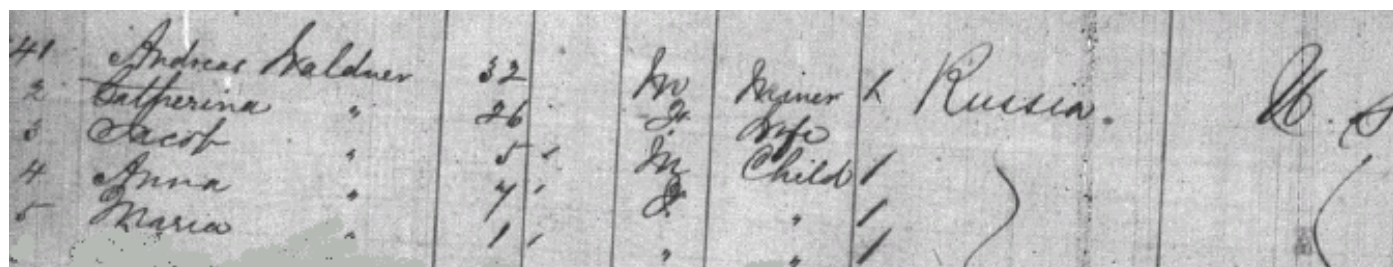 41 Andreas Waldner 32 M Miner L Russia. U.S
2 Catherina " 26 F. Wife
3 Jacob " 5 ' M Child 1
4 Anna " 7 ' F. " 1
5 Maria " 1 ' " " 1